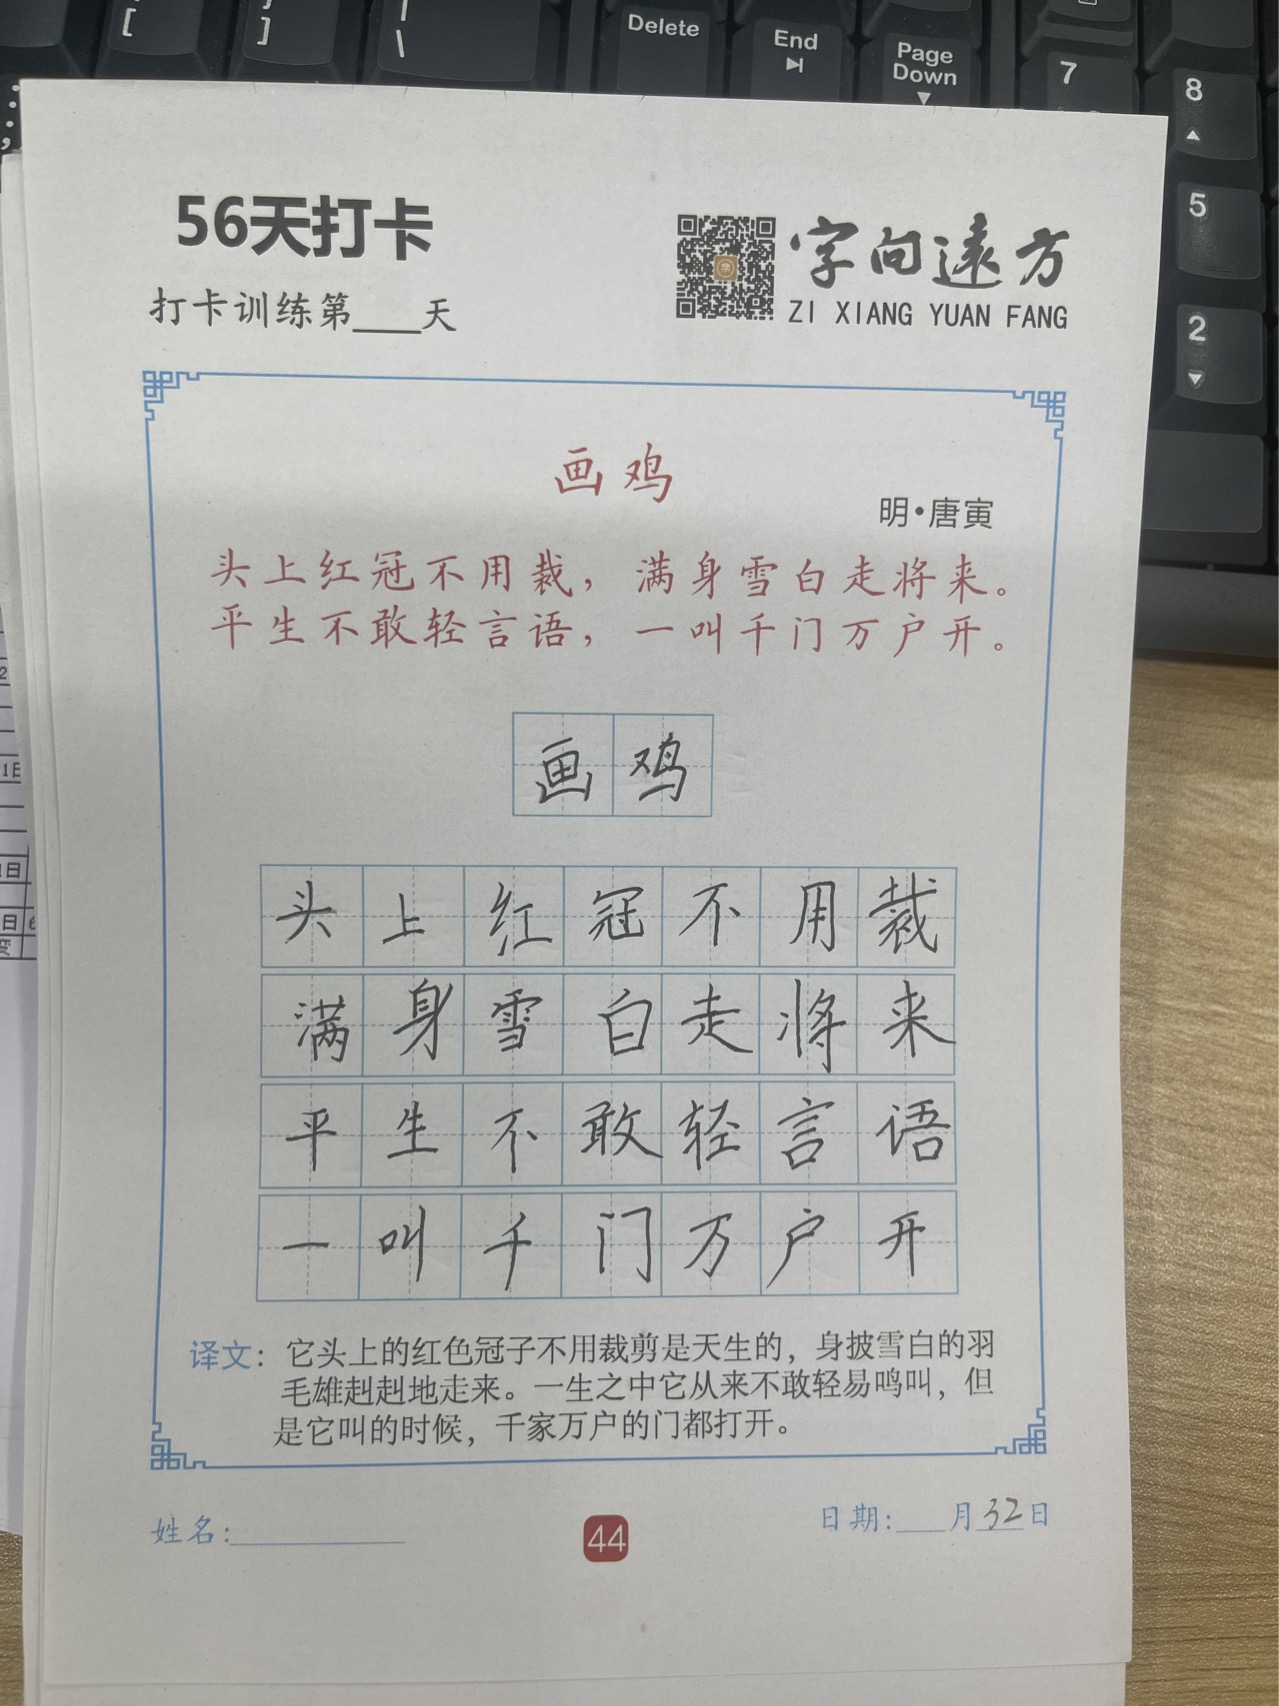 [
]
|
\
Delete
End
Page
Down
7
8
5
2
56天打卡
打卡训练第____天
字向遠方
ZI XIANG YUAN FANG
画鸡
明•唐寅
头上红冠不用裁，满身雪白走将来。
平生不敢轻言语，一叫千门万户开。
画鸡
头上红冠不用裁
满身雪白走将来
平生不敢轻言语
一叫千门万户开
译文：它头上的红色冠子不用裁剪是天生的，身披雪白的羽
毛雄赳赳地走来。一生之中它从来不敢轻易鸣叫，但
是它叫的时候，千家万户的门都打开。
姓名：
44
日期：___月32日